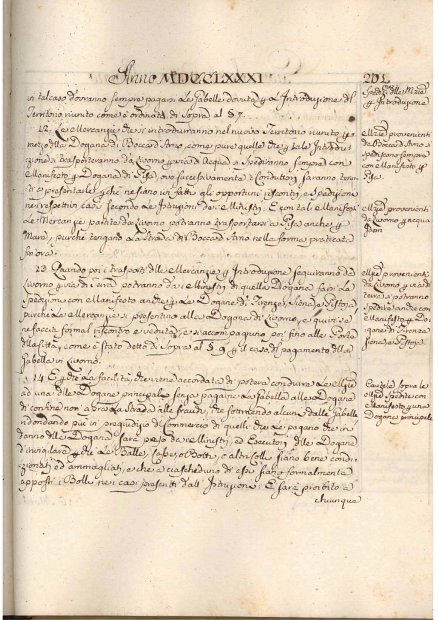 Anno MDCCLXXXI
201
in tal caso dovranno sempre pagarsi le Gabelle dovute p l'Introduzione del
Territorio riunito come è ordinato di sopra al § 7.
12. Le Mercanzie che si introdurranno nel nuovo Territorio riunito p
mezzo della Dogana di Bocca d'Arno, come pure quelle che p tale Introdu
zione si trasporteranno da Livorno p via di Acqua si spediranno sempre con
Manifesto p Dogana di Pisa, ove successivamente i Conduttori saranno tenu
ti a presentarle, p che ne siano in fatti gli opportuni riscontri, e spedizione
nei rispettivi casi secondo le Istruzioni dei Ministri. E con tali Manifesti
le Mercanzie partite da Livorno potranno trasportarsi a Pisa anche p
Mare, purchè tengano la strada di Bocca d'Arno nella forma praticata
fin'ora.
13. Quando poi i trasporti delle Mercanzie p Introduzione seguiranno da
Livorno p via di terra potranno da i Ministri di quelle Dogane farsi le
Spedizioni con Manifesto anche p le Dogane di Firenze, Siena, e Pistoja
purchè le Mercanzie si presentino alla Dogana di Livorno, e quivi se
ne faccia formal riscontro e veduta, e si accompagnino poi fino alle Porte
della Città, come è stato detto di sopra al § 9 p il caso di pagamento della
Gabella in Livorno.
14. E p che la facilità, che viene accordata di potersi condurre le Merci
ad una delle Dogane principali senza pagare la Gabella alle Dogane
di confine non apra la strada alle fraudi, che sottraendo alcuni dalle Gabelle
ridondano più in pregiudizio del Commercio di quelli che le pagano che in
danno delle Dogane sarà peso de Ministri, ed Esecutori delle Dogane
d'invigilare p che le Balle, Colli, Botti, e altri Colli siano bene condi
zionati ed ammagliati, e che a ciascheduno di essi siano formalmente
apposti i Bolli nei casi prescritti dall'Istruzione: E sarà proibito a
chiunque
Mercanzie provenienti
da Bocca d'Arno a
spedirsi sempre
con Manifesto p
Pisa
Mercanzie provenienti
da Livorno p acqua
Idem
Mercanzie provenienti
da Livorno p via di
terra si potranno
spedire anche con
Manifesto p le
Dogane di Firenze
Siena, e Pistoja
Cautele sopra le
Merci spedite con
Manifesto p una
Dogana principale